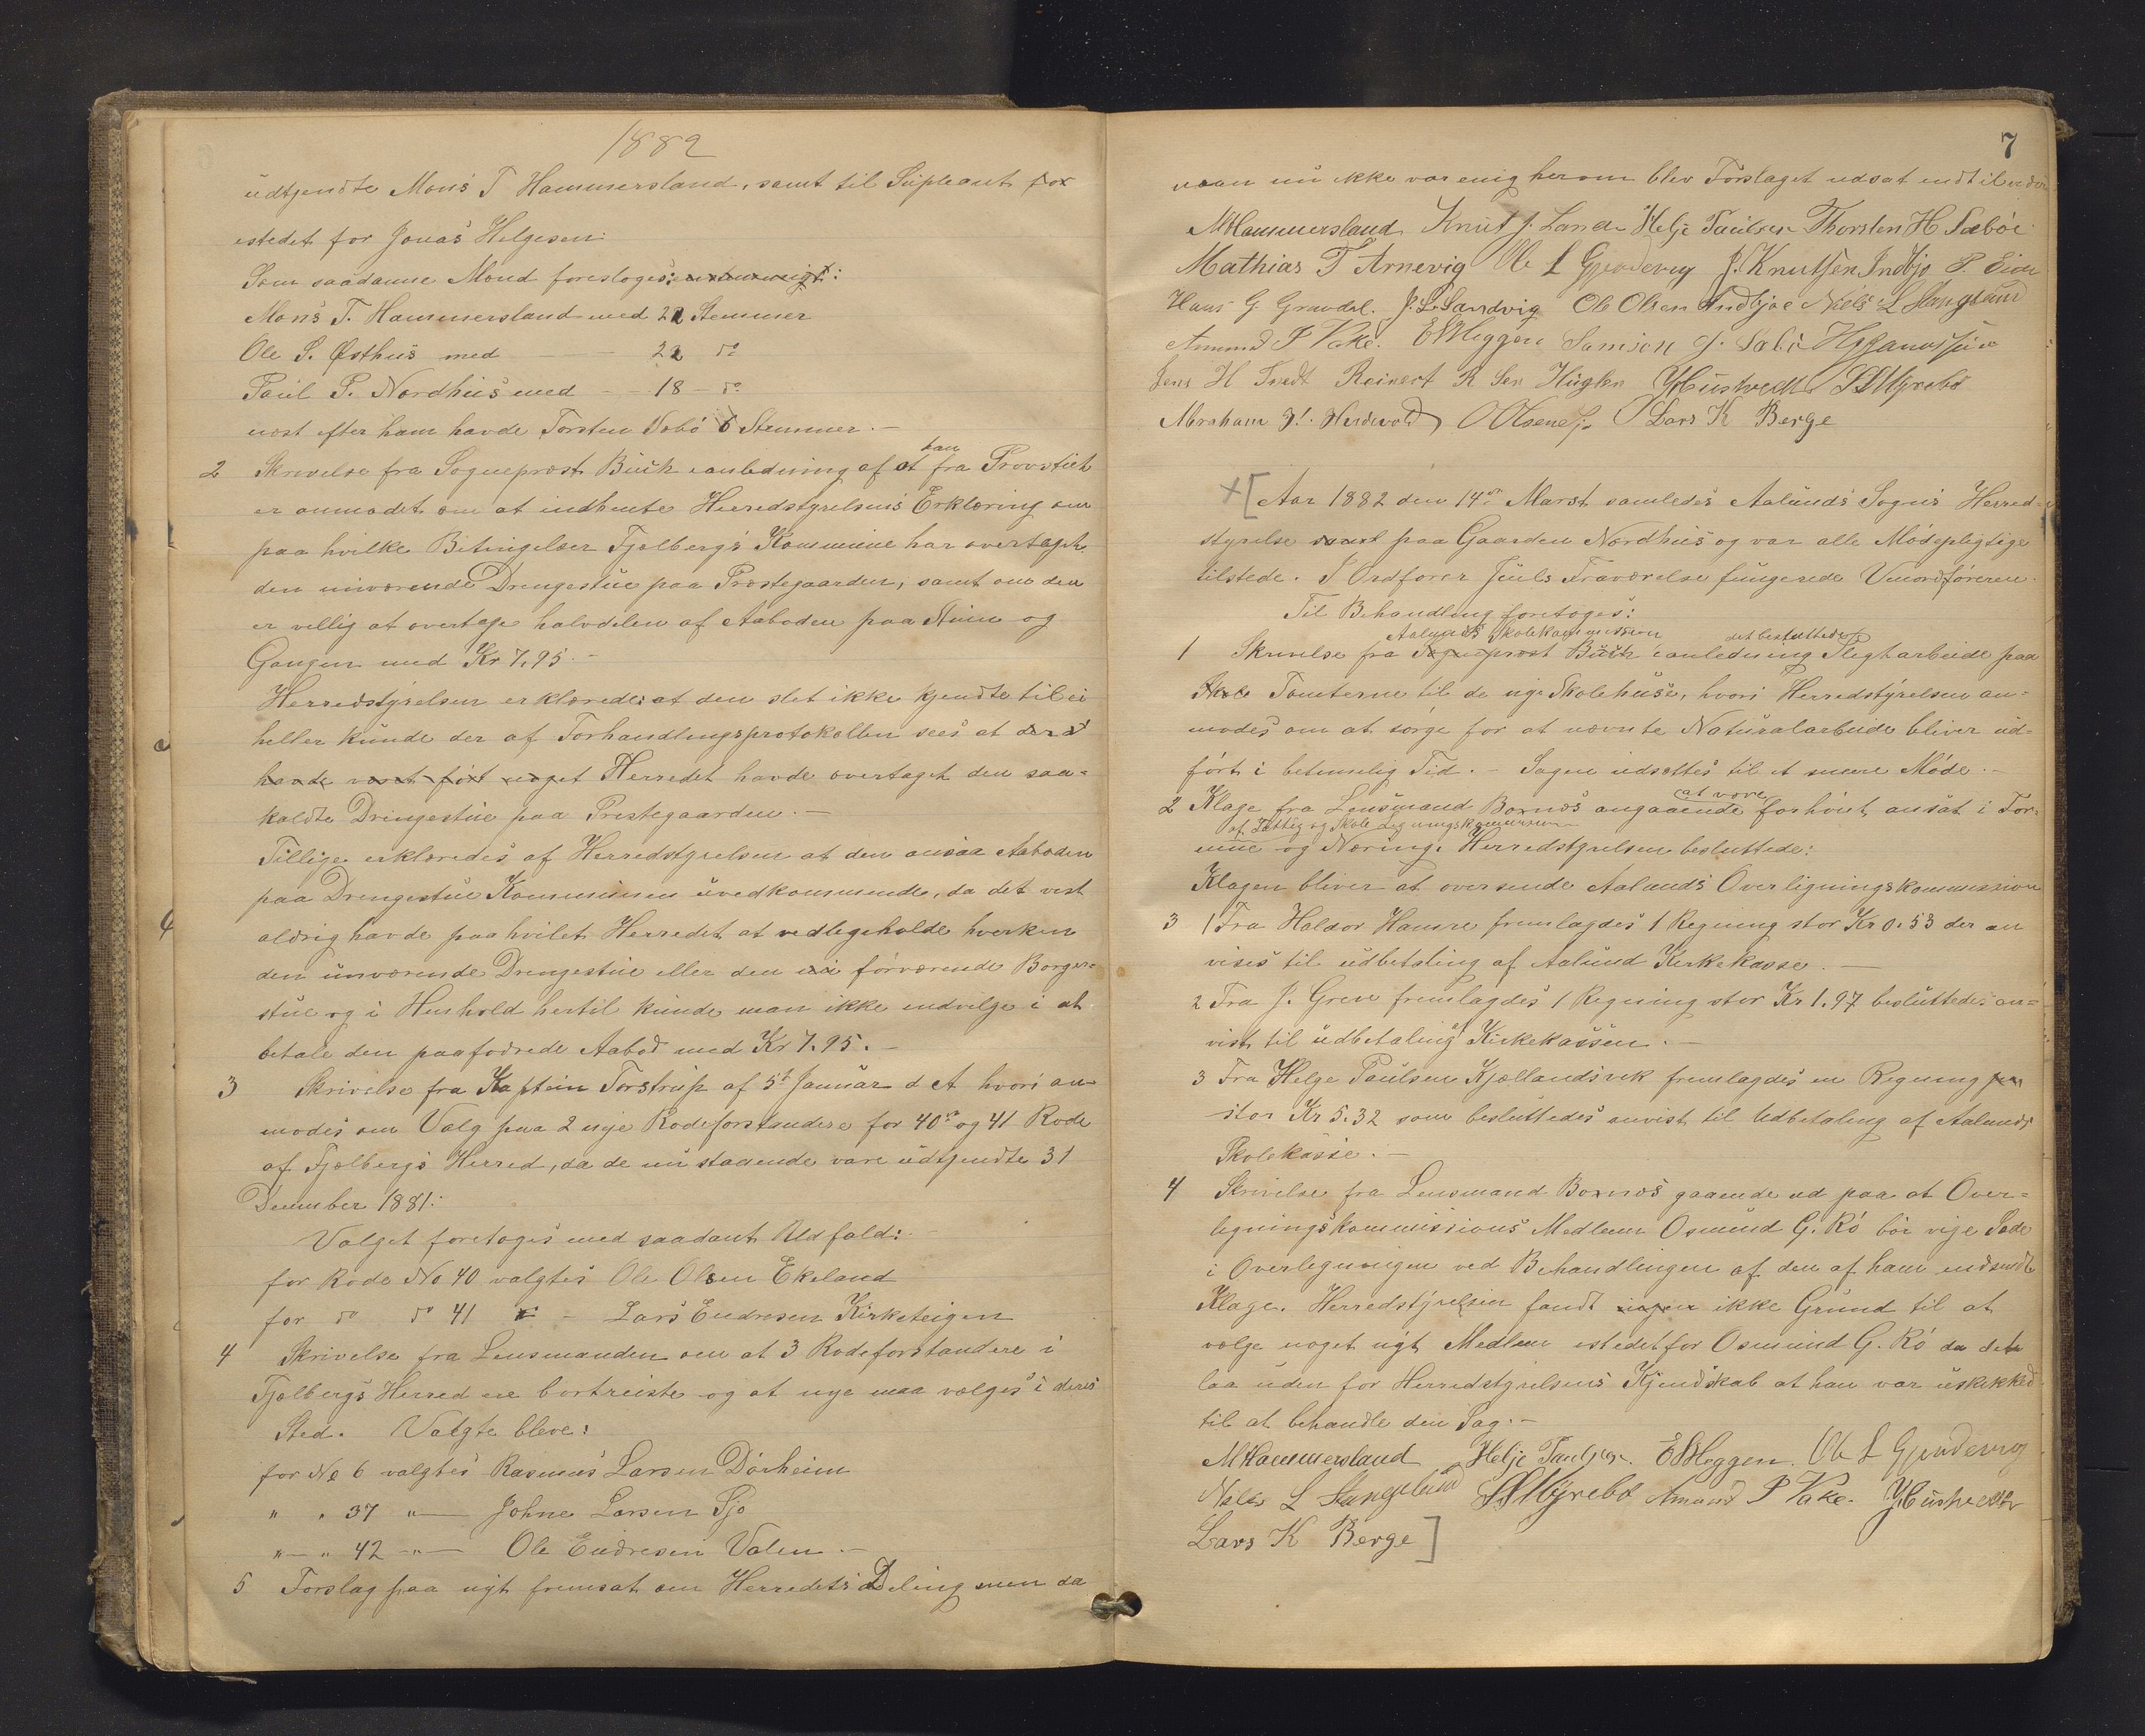 1882
udtjendte Mons T Hammersland, samt til Supleant for
istedet for Jonas Helgesen
Som saadanne Mænd foresloges: enstemmigt:
Mons T. Hammersland med 21 Stemmer
Ole S. Østhus med 21 do
Paul P. Nordhus med 18 do
næst efter ham havde Torsten Sæbø 6 Stemmer.
2 Skrivelse fra Sogneprest Buch ianledning af at han fra Provstiet
er anmodet om at indhente Herredstyrelsens Erklæring om
paa hvilke Betingelser Fjelbergs Kommune har overtaget
den nuværende Drengestue paa Prestegaarden, samt om den
er villig at overtage halvdelen af Aaboden paa Stuen og
Gangen med Kr 7,95.
Herredstyrelsen erklærede: at den slet ikke kjendte til ei
heller kunde der af Forhandlingsprotokollen sees at der
havde været ført noget Herredet havde overtaget den saa-
kaldte Drengestue paa Prestegaarden.
Tillige erklæredes af Herredstyrelsen at den ansaa Aaboden
paa Drengestue Kommunen uvedkommende, da det vist
aldrig havde paahvilet Herredet at vedlegeholde hverken
den nuværende Drengestue eller den forværende Borger-
stue og i Henhold hertil kunde man ikke indvilge i at
betale den paafodrede Aabod med Kr 7.95.
3 Skrivelse fra Kaptein Torstrup af 5t Januar d A hvori an-
modes om Valg paa 2 nye Rodeforstandere for 40de og 41 Rode
af Fjelbergs Herred, da de nu staaende vare udtjendte 31
December 1881:
Valget foretoges med saadant Udfald:
for Rode No 40 valgtes Ole Olsen Ekeland
for do do 41 Lars Endresen Kirketeigen
4 Skrivelse fra Lensmanden om at 3 Rodeforstandere i
Fjelbergs Herred ere bortreiste og at nye maa vælges i deres
Sted. Valgte bleve:
for No 6 valgtes Rasmus Larsen Dørheim
" " 37 " Johne Larsen Sjo
" " 42 " Ole Endresen Valen
5 Forslag paa nyt fremsat om Herredets Deling men da
7
man nu ikke var enig herom blev Forslaget udsat indtil videre
MHammersland Knut J. Landa Helje Paulsen Thorsten H Sæbøe
Mathias T Arnevig Ole L Gjerdevig J. Knutsen Indbjo P. Eien
Hans G. Grindal. J. L. Sandvig Ole Olsen Indbjoe Niels L Stangeland
Amund P Vake. EBHeggen Samson J. Sæbø
Jens H Tvedt Reinert R Sen Huglen YHustvedt SSMyrebø
Abraham J. Hundevold OOlsen Lars K Berge
+[Aar 1882 den 14de Marst samledes Aalunds Sogns Herred-
styrelse paa Gaarden Nordhus og var alle Mødepligtige
tilstede. I Ordfører Juels Fraværelse fungerede Viceordføreren.
Til Behandling foretoges:
Aalunds Skolekommission det besluttede
1 Skrivelse fra Sogneprest Buch ianledning Pligtarbeide paa
Skole Tomterne til de nye Skolehuse, hvori Herredstyrelsen an-
modes om at sørge for at nævnte Naturalarbeide bliver ud-
ført i betimelig Tid. - Sagen udsættes til et senere Møde.
2 Klage fra Lensmand Boxnæs angaaende at være forhøit ansat i For-
af Fattig og Skole Ligningskommission
mue og Næring. Herredstyrelsen besluttede:
Klagen bliver at oversende Aalunds Overligningskommission
3 1 Fra Haldor Hamre fremlagdes 1 Regning stor Kr 0.53 der an
vises til udbetaling af Aalund Kirkekasse.
2 Fra J. Greve fremlagdes 1 Regning stor Kr 1.97 besluttedes an-
vist til udbetaling af Kirkekassen.
3 Fra Helge Paulsen Kjællandsvik fremlagdes en Regning
stor Kr 5.32 som besluttedes anvist til Udbetaling af Aalunds
Skolekasse.
4 Skrivelse fra Lensmand Boxnæs gaaende ud paa at Over-
ligningskommissions Medlem Osmund G. Rø bør vige Sæde
i Overligningen ved Behandlingen af den af ham indsendte
Klage. Herredstyrelsen fandt ingen ikke Grund til at
vælge noget nyt Medlem istedetfor Osmund G. Rø da det
laa uden for Herredstyrelsens Kjendskab at han var uskikked
til at behandle den Sag.
MHammersland Helje Paulsen. EBHeggen. Ole L Gjerdevig
Niels L Stangeland SSMyrebø Amund P Vake. YHustvedt
Lars K Berge]